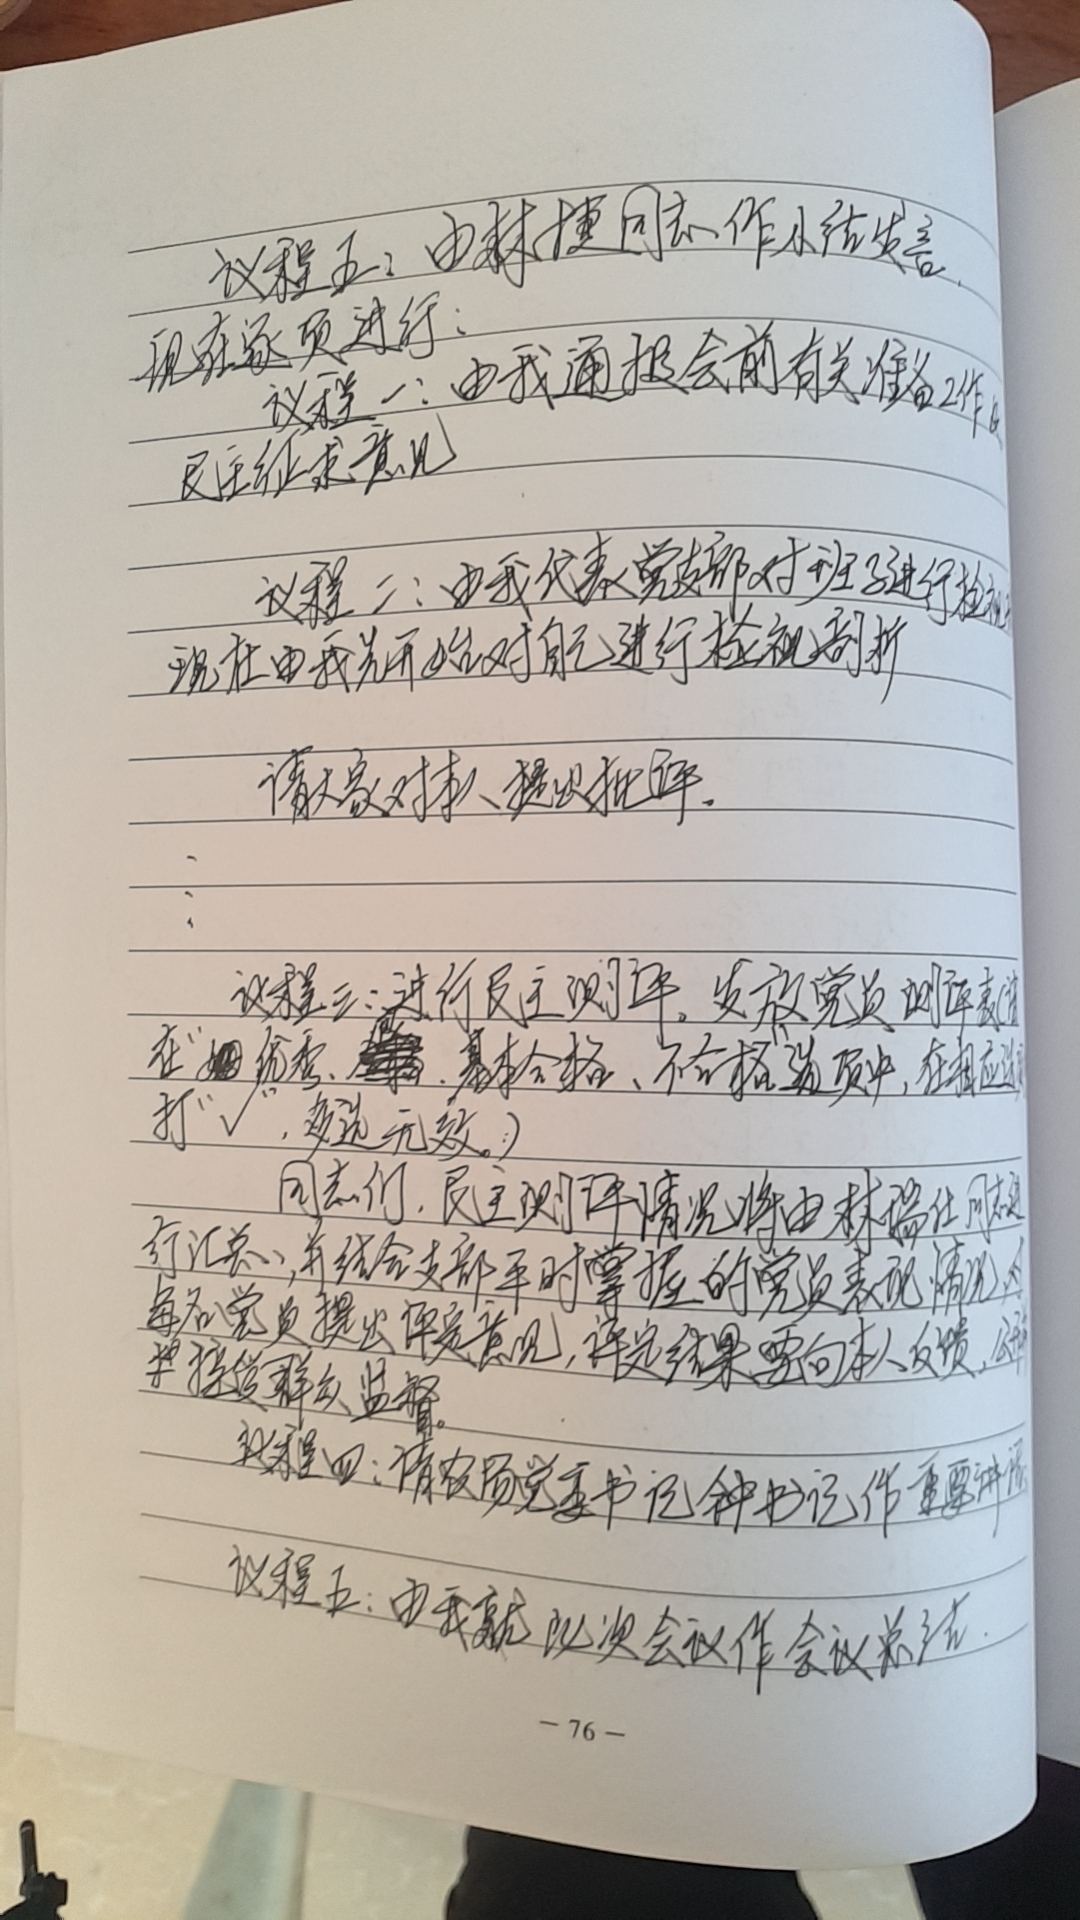 议程五：由林捷同志作小结发言.
现在逐项进行：
议程一：由我通报会前有关准备工作及
民主征求意见
议程二：由我代表党支部对班子进行检视
现在由我先开始对自己进行检视剖析
请大家对本人提出批评.
议程三：进行民主测评。发放党员测评表(请
在“优秀、基本合格、不合格”选项中,在相应选项
打“✓”,多选无效。)
同志们,民主测评情况将由林瑞仕同志进
行汇总,并结合支部平时掌握的党员表现情况,对
每名党员提出评定意见,评定结果要向本人反馈,公开
接受群众监督。
议程四：请农场党委书记钟书记作重要讲话
议程五：由我就此次会议作会议总结.
— 76 —